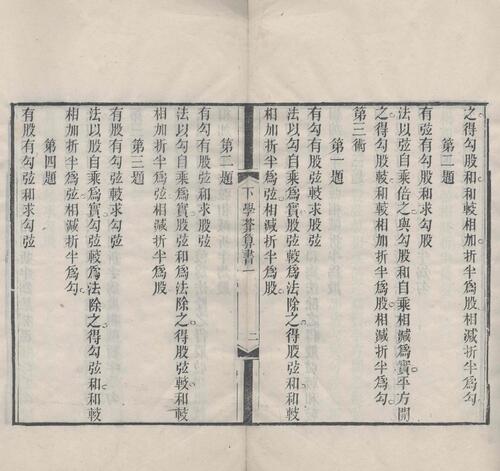 之得勾股和和較相加折半爲股相減折半爲勾
第二題
有弦有勾股和求勾股
法以弦自乘倍之與勾股和自乘相減爲實平方開
之得勾股較和較相加折半爲股相減折半爲勾
第三術
第一題
有勾有股弦較求股弦
法以勾自乘爲實股弦較爲法除之得股弦和和較
相加折半爲弦相減折半爲股
下學葊算書一
二
第二題
有勾有股弦和求股弦
法以勾自乘爲實股弦和爲法除之得股弦較和較
相加折半爲弦相減折半爲股
第三題
有股有勾弦較求勾弦
法以股自乘爲實勾弦較爲法除之得勾弦和和較
相加折半爲弦相減折半爲勾
第四題
有股有勾弦和求勾弦